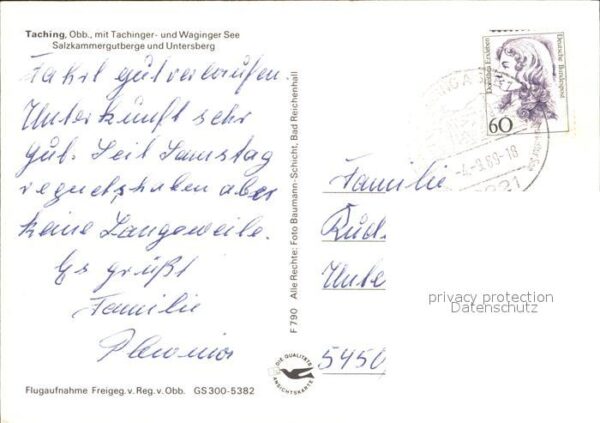 Taching, Obb., mit Tachinger- und Waginger See
Salzkammergutberge und Untersberg
Fahrt gut verlaufen.
Unterkunft sehr
gut. Seit Samstag
regnet's haben aber
keine Langeweile.
Es grüßt
Familie
F 790 Alle Rechte: Foto Baumann-Schicht, Bad Reichenhall
Dorothea Erxleben
Deutsche Bundespost
60
-18
8221
Familie
Rüd
Unte
5450
privacy protection
Datenschutz
DIE QUALITÄTS
ANSICHTSKARTE
Flugaufnahme Freigeg. v. Reg. v. Obb. GS 300-5382